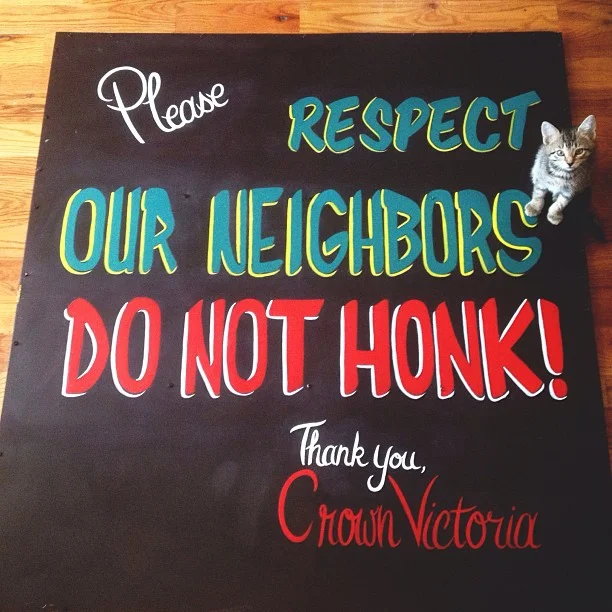 Please RESPECT
OUR NEIGHBORS
DO NOT HONK!
Thank you,
Crown Victoria